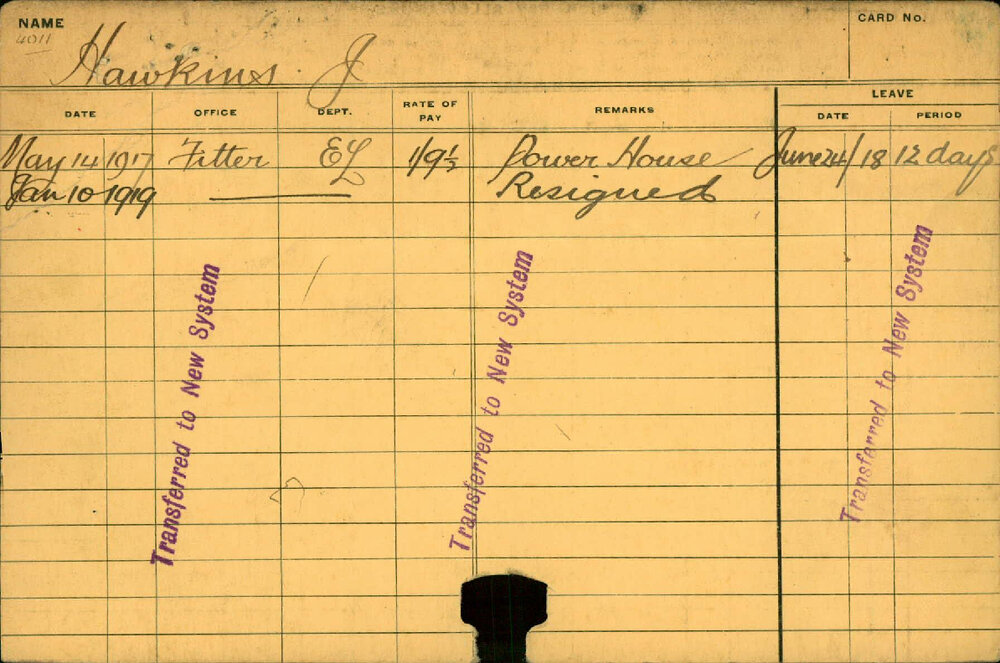 NAME
CARD No.
4011
Hawkins J
LEAVE
DATE OFFICE DEPT. RATE OF PAY REMARKS DATE PERIOD
May 14 1917 Fitter EL 1/9½ Power House June 24/18 12 days
Jan 10 1919 Resigned
Transferred to New System
Transferred to New System
Transferred to New System